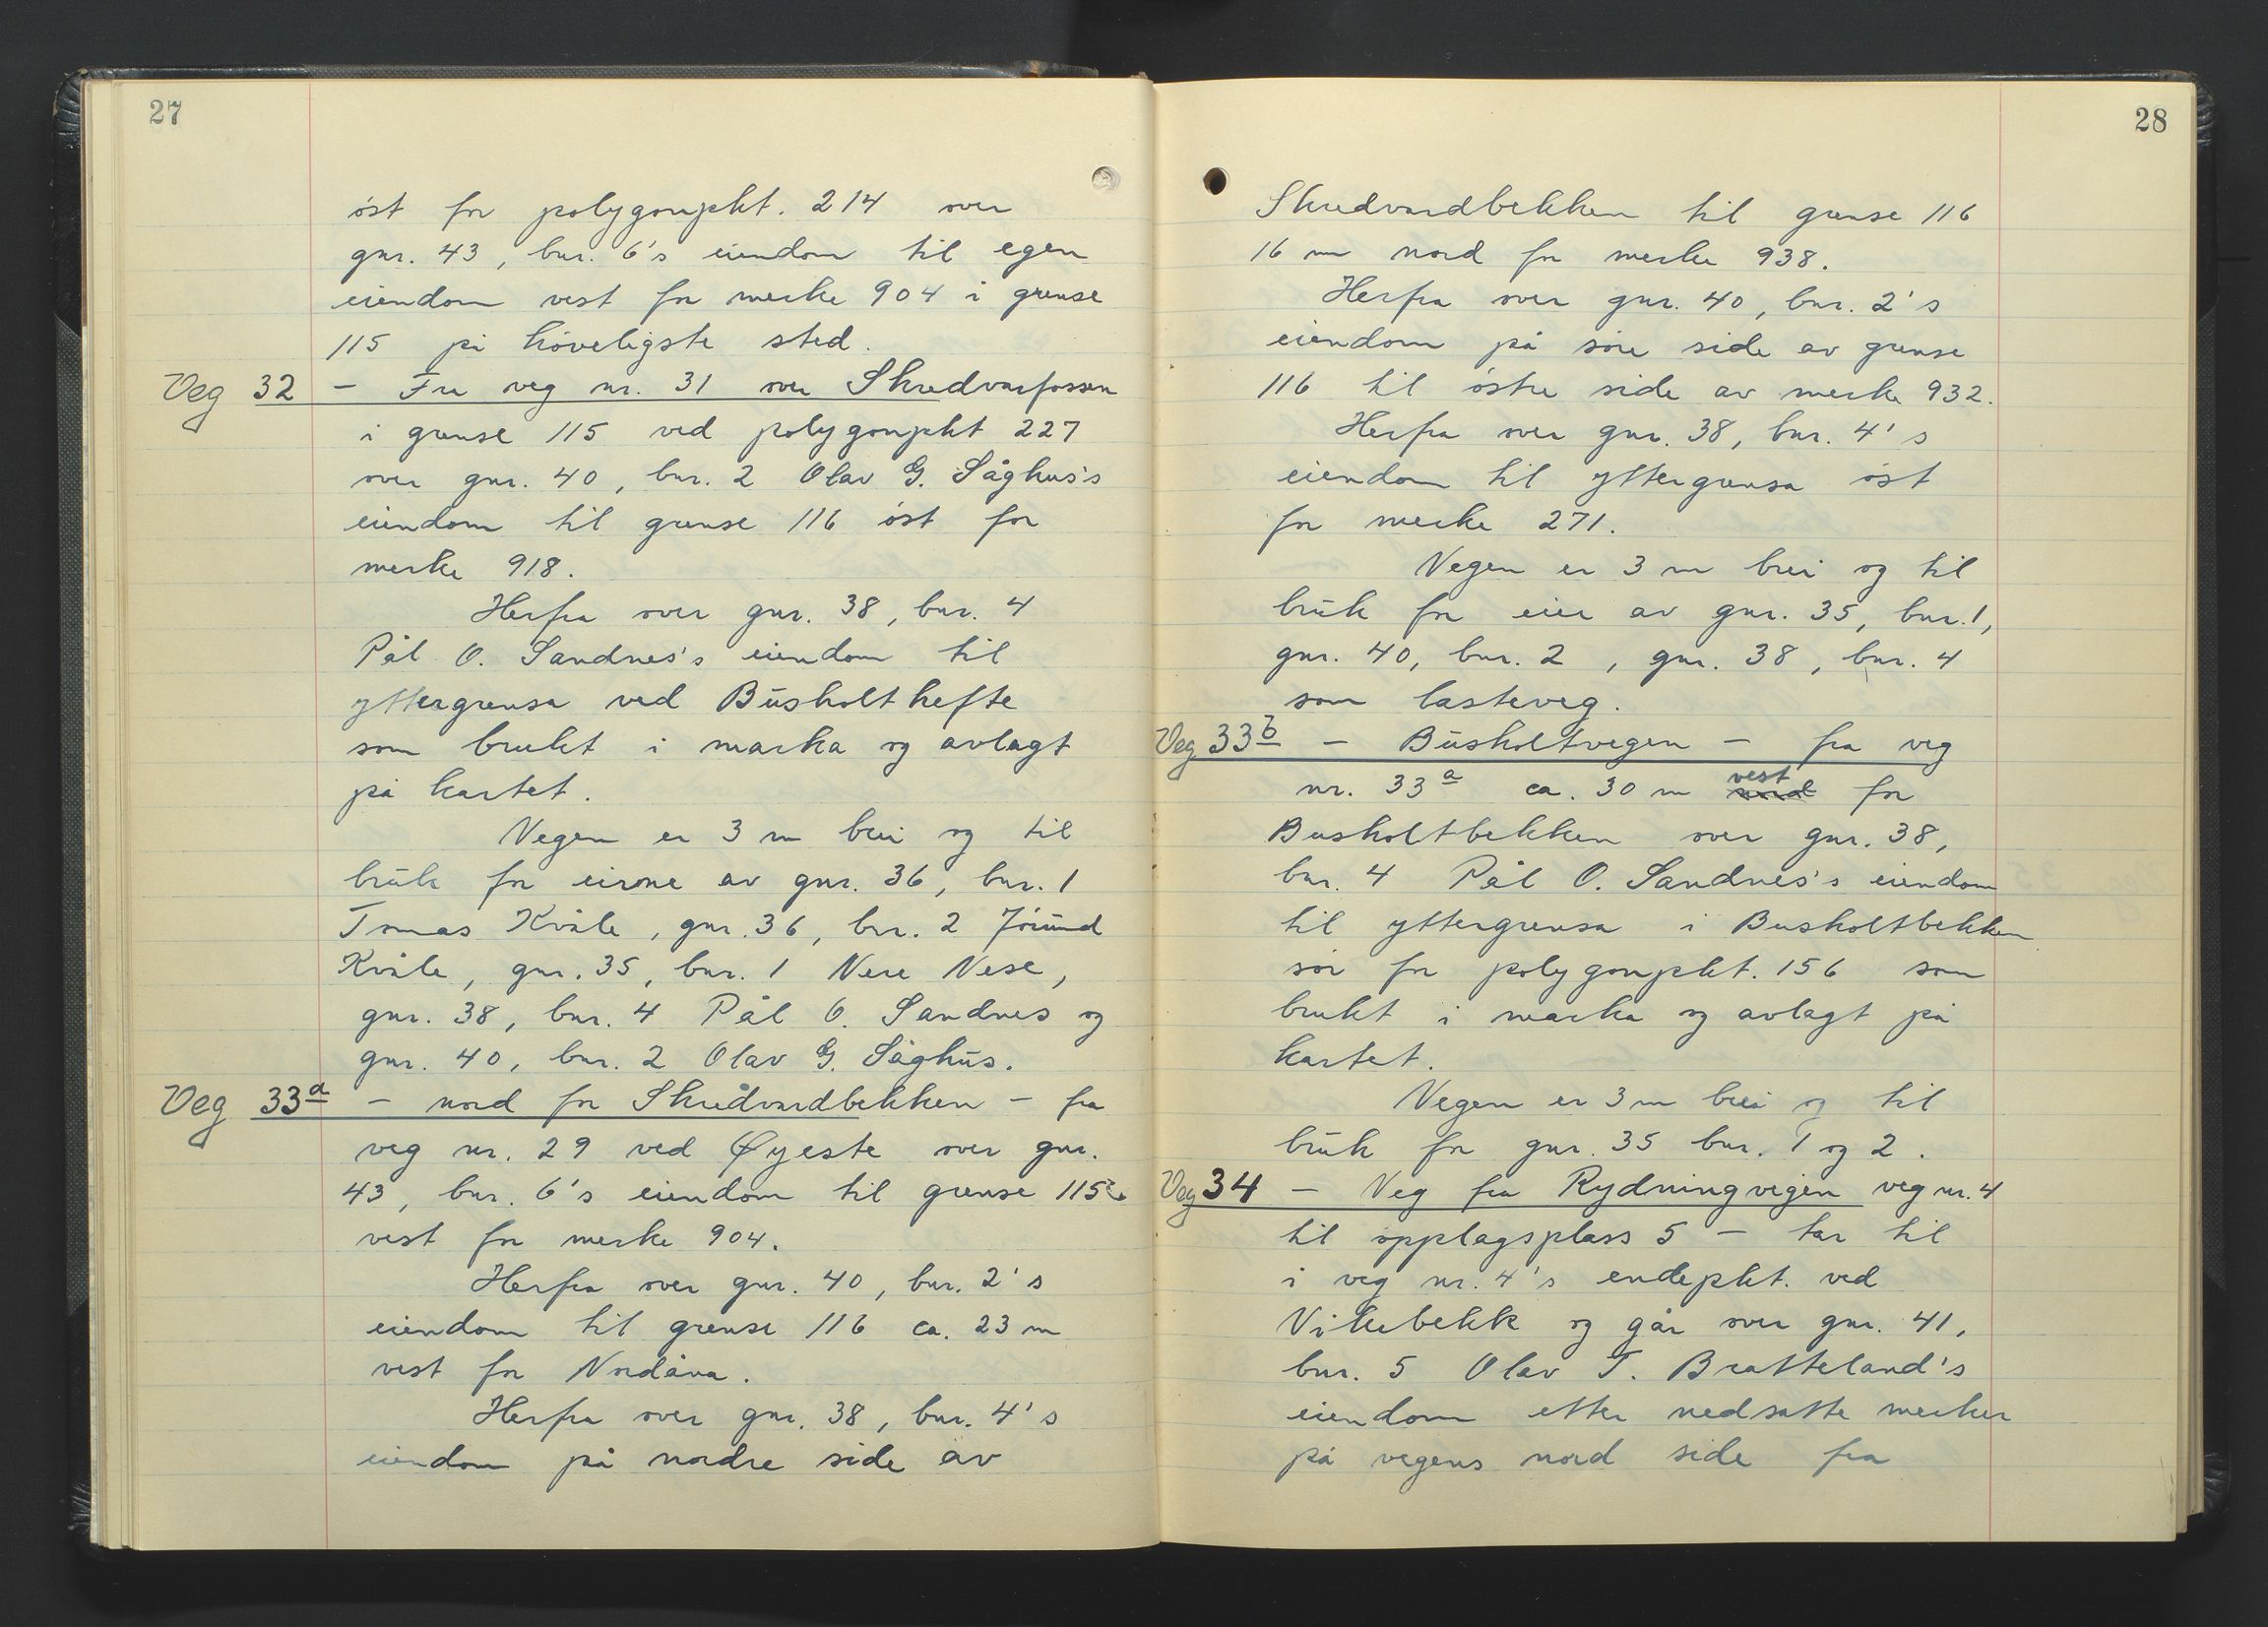 27
öst for polygonpkt. 214 over
gnr. 43, bnr. 6's eiendom til egen
eiendom vest for merke 904 i grense
115 på höveligste sted.
Veg 32 - Fra veg nr. 31 over Skredvarfossen
i grense 115 ved polygonpkt 227
over gnr. 40, bnr. 2 Olav G. Såghus's
eiendom til grense 116 öst for
merke 918.
Herfra over gnr. 38, bnr. 4
Pål O. Sandnes's eiendom til
yttergrensa ved Busholthefte
som brukt i marka og avlagt
på kartet.
Vegen er 3 m brei og til
bruk for eirne av gnr. 36, bnr. 1
Tomas Kvåle, gnr. 36, bnr. 2 Jörund
Kvåle, gnr. 35, bnr. 1 Nere Nese,
gnr. 38, bnr. 4 Pål O. Sandnes og
gnr. 40, bnr. 2 Olav G. Såghus.
Veg 33a - nord for Skredvardbekken - fra
veg nr. 29 ved Øyeste over gnr.
43, bnr. 6's eiendom til grense 115
vest for merke 904.
Herfra over gnr. 40, bnr. 2's
eiendom til grense 116 ca. 23 m
vest for Nordåna.
Herfra over gnr. 38, bnr. 4's
eiendom på nordre side av
28
Skredvardbekken til grense 116
16 m nord for merke 938.
Herfra over gnr. 40, bnr. 2's
eiendom på söre side av grense
116 til östre side av merke 932.
Herfra over gnr. 38, bnr. 4's
eiendom til yttergrensa öst
for merke 271.
Vegen er 3 m brei og til
bruk for eier av gnr. 35, bnr. 1,
gnr. 40, bnr. 2, gnr. 38, bnr. 4
som lasteveg.
Veg 33b - Busholtvegen - fra veg
nr. 33a ca. 30 m nord vest for
Busholtbekken over gnr. 38,
bnr. 4 Pål O. Sandnes's eiendom
til yttergrensa i Busholtbekken
sör for polygonpkt. 156 som
brukt i marka og avlagt på
kartet.
Vegen er 3 m brei og til
bruk for gnr. 35 bnr. 1 og 2.
Veg 34 - Veg fra Rydningvegen veg nr. 4
til opplagsplass 5 - tar til
i veg nr. 4's endepkt. ved
Vikebekk og går over gnr. 41,
bnr. 5 Olav T. Bratteland's
eiendom etter nedsatte merker
på vegens nord side fra